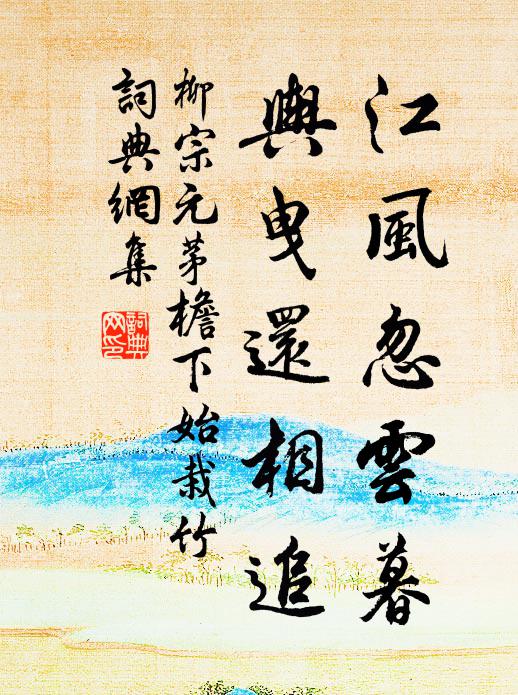 江風忽雲暮
輿曳還相追
柳宗元茅檐下始栽竹
詞典網集
詞典
网印